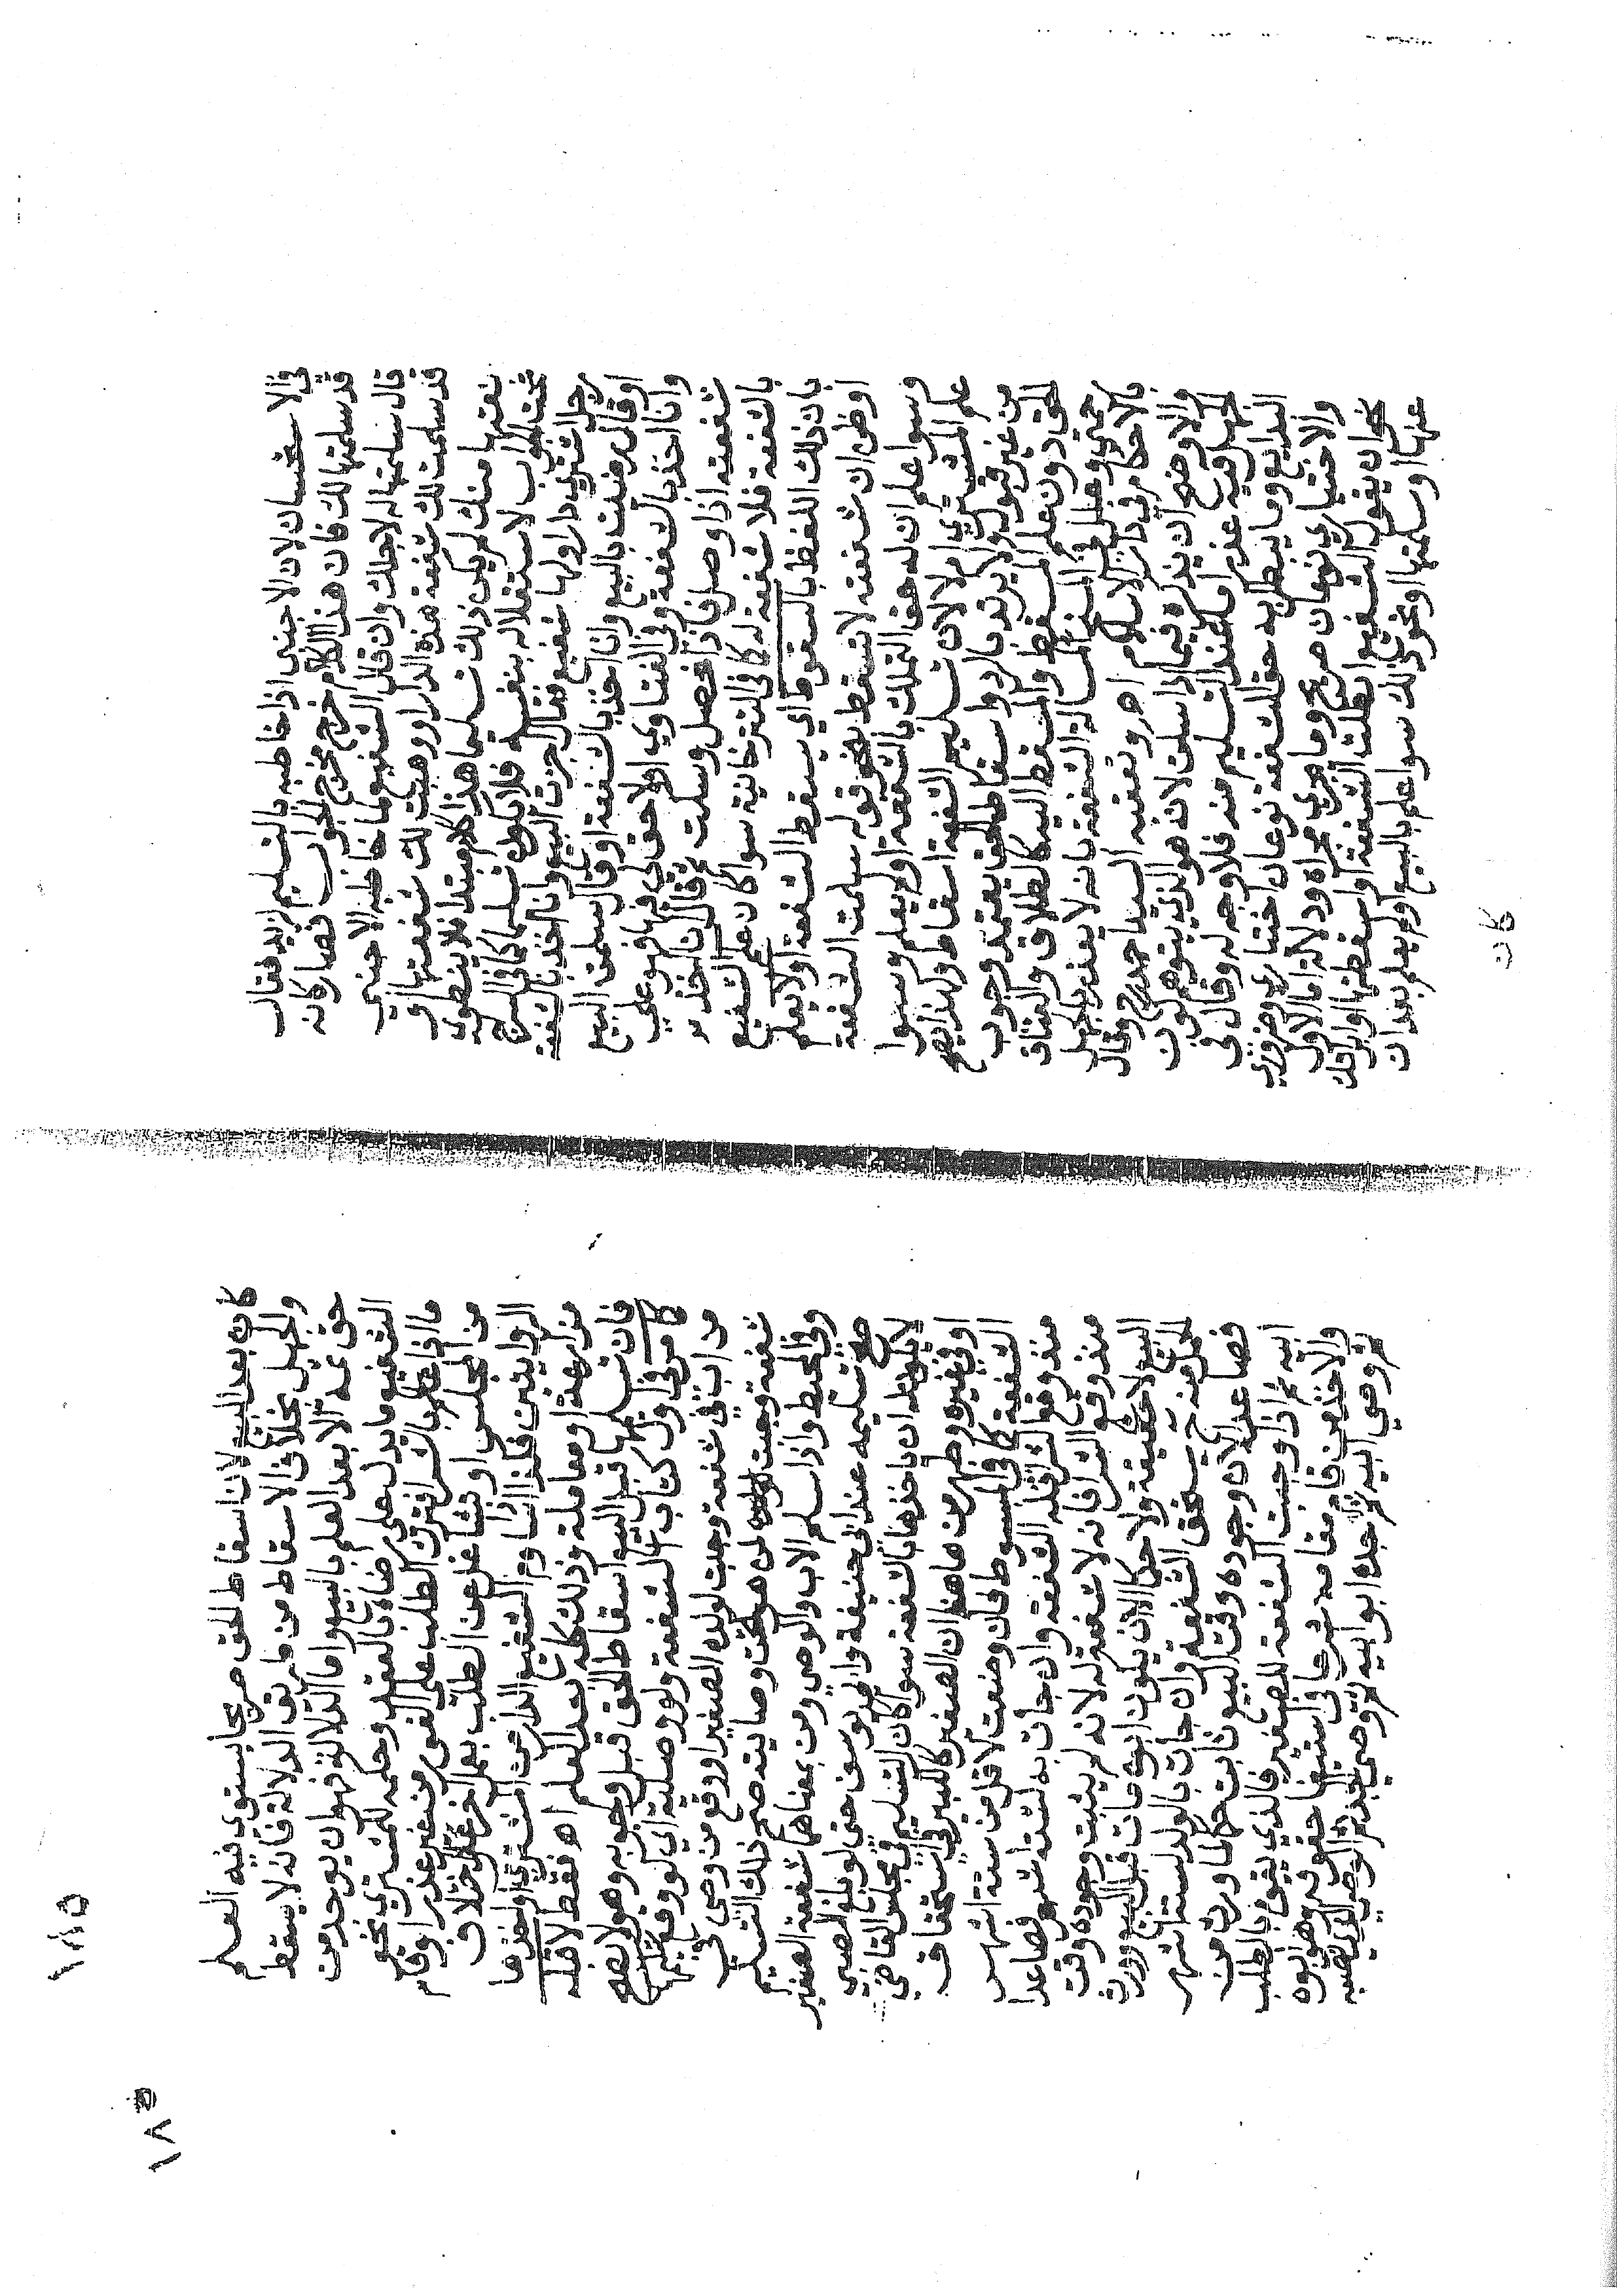 في الاستحسان لان الاجنبى اذا خاطبه بالتسليم لزيد فقال
قد سلمتها لك فان هذا الكلام خرج مخرج الجواب فصار كانه
قال سلمتها له لاجلك وان قال الشفيع لما خاطبه الاجنبي
قد سلمت لك شفعة هذه الدار او وهبت لك شفعتها او
بعتها منك لم يكن ذلك تسليما هذا كلام مبتدا فلا ينطوي
تحت الجواب لاستقلاله بنفسه فلا يكون تسليما كما في السراج
رجل اشترى دارا ولها شفيع فقال اجزت البيع وانا اخذ بالشفعة
او قال رضيت بالبيع وانا اخذ بالشفعة او قال سلمت البيع
وانا اخذ بالشفعة وفي الفتاوي او لا حق لي فيها فهو علي
شفعته اذا وصل فاذا فصل وسلمت ثم قال انا اخذ
بالشفعة فلا شفعة له كما في التترخانية سوا كان علم الشفيع
بان ذلك اللفظ بالسقوط اي يسقط الشفعة او لا يعلم
او ظن ان شفعته لا تسقط بنحو قوله سلمت الشفعة
وسوا علم ان له حق التملك بالشفعة او لم يعلم وسوا
علم المشتري ام لا لان تسليم الشفعة اسقاط ولهذا يصح
من غير قبول ولا يرتد بالرد واسقاط الحق يعتمد وجوب
الحق دون علم المسقط والمسقط اليه كالطلاق والعتاق
حموي وعلل في المنبع المسالة الشفعة بانه لا يعذر بالجهل
بالاحكام في دار الاسلام اهـ وتعقبه السيد احمد رح وقال
والاوضح ان يذكره فيما اذا سلمت لانه هو الذي يتوهم كون
الجهل فيه عذر اما عند التسليم منه فلا وجه له وقال في
البدايع وما يبطل به حق الشفعة نوعان اختياري وضروري
والاختياري نوعان صريح وما يجري مجراه ودلالة اما الاول
نحو ان يقول الشفيع ابطلت الشفعة او اسقطتها او ابراتك
عنها او سلمتها او نحو ذلك سوا علم بالبيع او لم يعلم بعد ان
كان
كان بعد البيع لان اسقاط الحق صريحا يستوي فيه العلم
والجهل بخلاف الاسقاط من طريق الدلالة فانه لا يسقط
حق عمه الا بعد العلم بالبيع واما الدلالة فهو ان يوجد من
الشفيع ما يدل على رضاه بالعقد وحكمه للمشتري نحو
ما اذا علم بالشرا فترك الطلب علي الفور من غير عذر او قام
من المجلس او تشاغل عن الطلب بعمل اخر علي اختلاف
الروايتين فلذا اذا ساوم الشفيع الدار من المشتري او اخذها
مزارعة او معاملة وذلك كله بعد العلم اهـ فقط لا قبله
فان تسليمها قبل البيع اسقاط الحق قبل وجوبه وهو لا يصح
كما مر في اول كتاب الشفعة ولو وصلية اي لو وقع تسليمها
من اب في شفعة وجبت لولده الصغير او وقع من وصي في
شفعة وجبت لمن هو تحت وصايته صح ذلك التسليم
وفي المحيط واذا سلم الاب والوصي ومن بمعناهما شفعة الصغير
صح تسليمه عند ابي حنيفة وابي يوسف حتي لو بلغ الصبي
لا يكون له ان ياخذها بالشفعة سوا كان التسليم في مجلس القاضي
او في غيره وظهر من هاهنا ان الصغير كالكبير في استحقاق
الشفعة كما في المبسوط فان وضعت لاقل من ستة اشهر
منذ وقع الشرا فله الشفعة وان جات به لستة اشهر فصاعدا
منذ وقع الشرا فانه لا شفعة له لانه لم يثبت وجوده وقت
البيع لا حقيقة ولا حكما الا ان يكون ابوه مات قبل البيع وورث
الحمل منه ح يستحق الشفعة وان جات بالولد لستة اشهر
فصاعدا لان وجوده وقت البيع ثابت حكما لما ورث من
ابيه ثم اذا وجبت الشفعة للصغير فالذي يقوم بالطلب
والاخذ من قام مقامه شرعا في استيفا حقوقه وهو ابوه
ثم وصي ابيه ثم جده ابو ابيه ثم وصي الجد ثم الوصي الذي نصبه
١٨٥
١٨٥